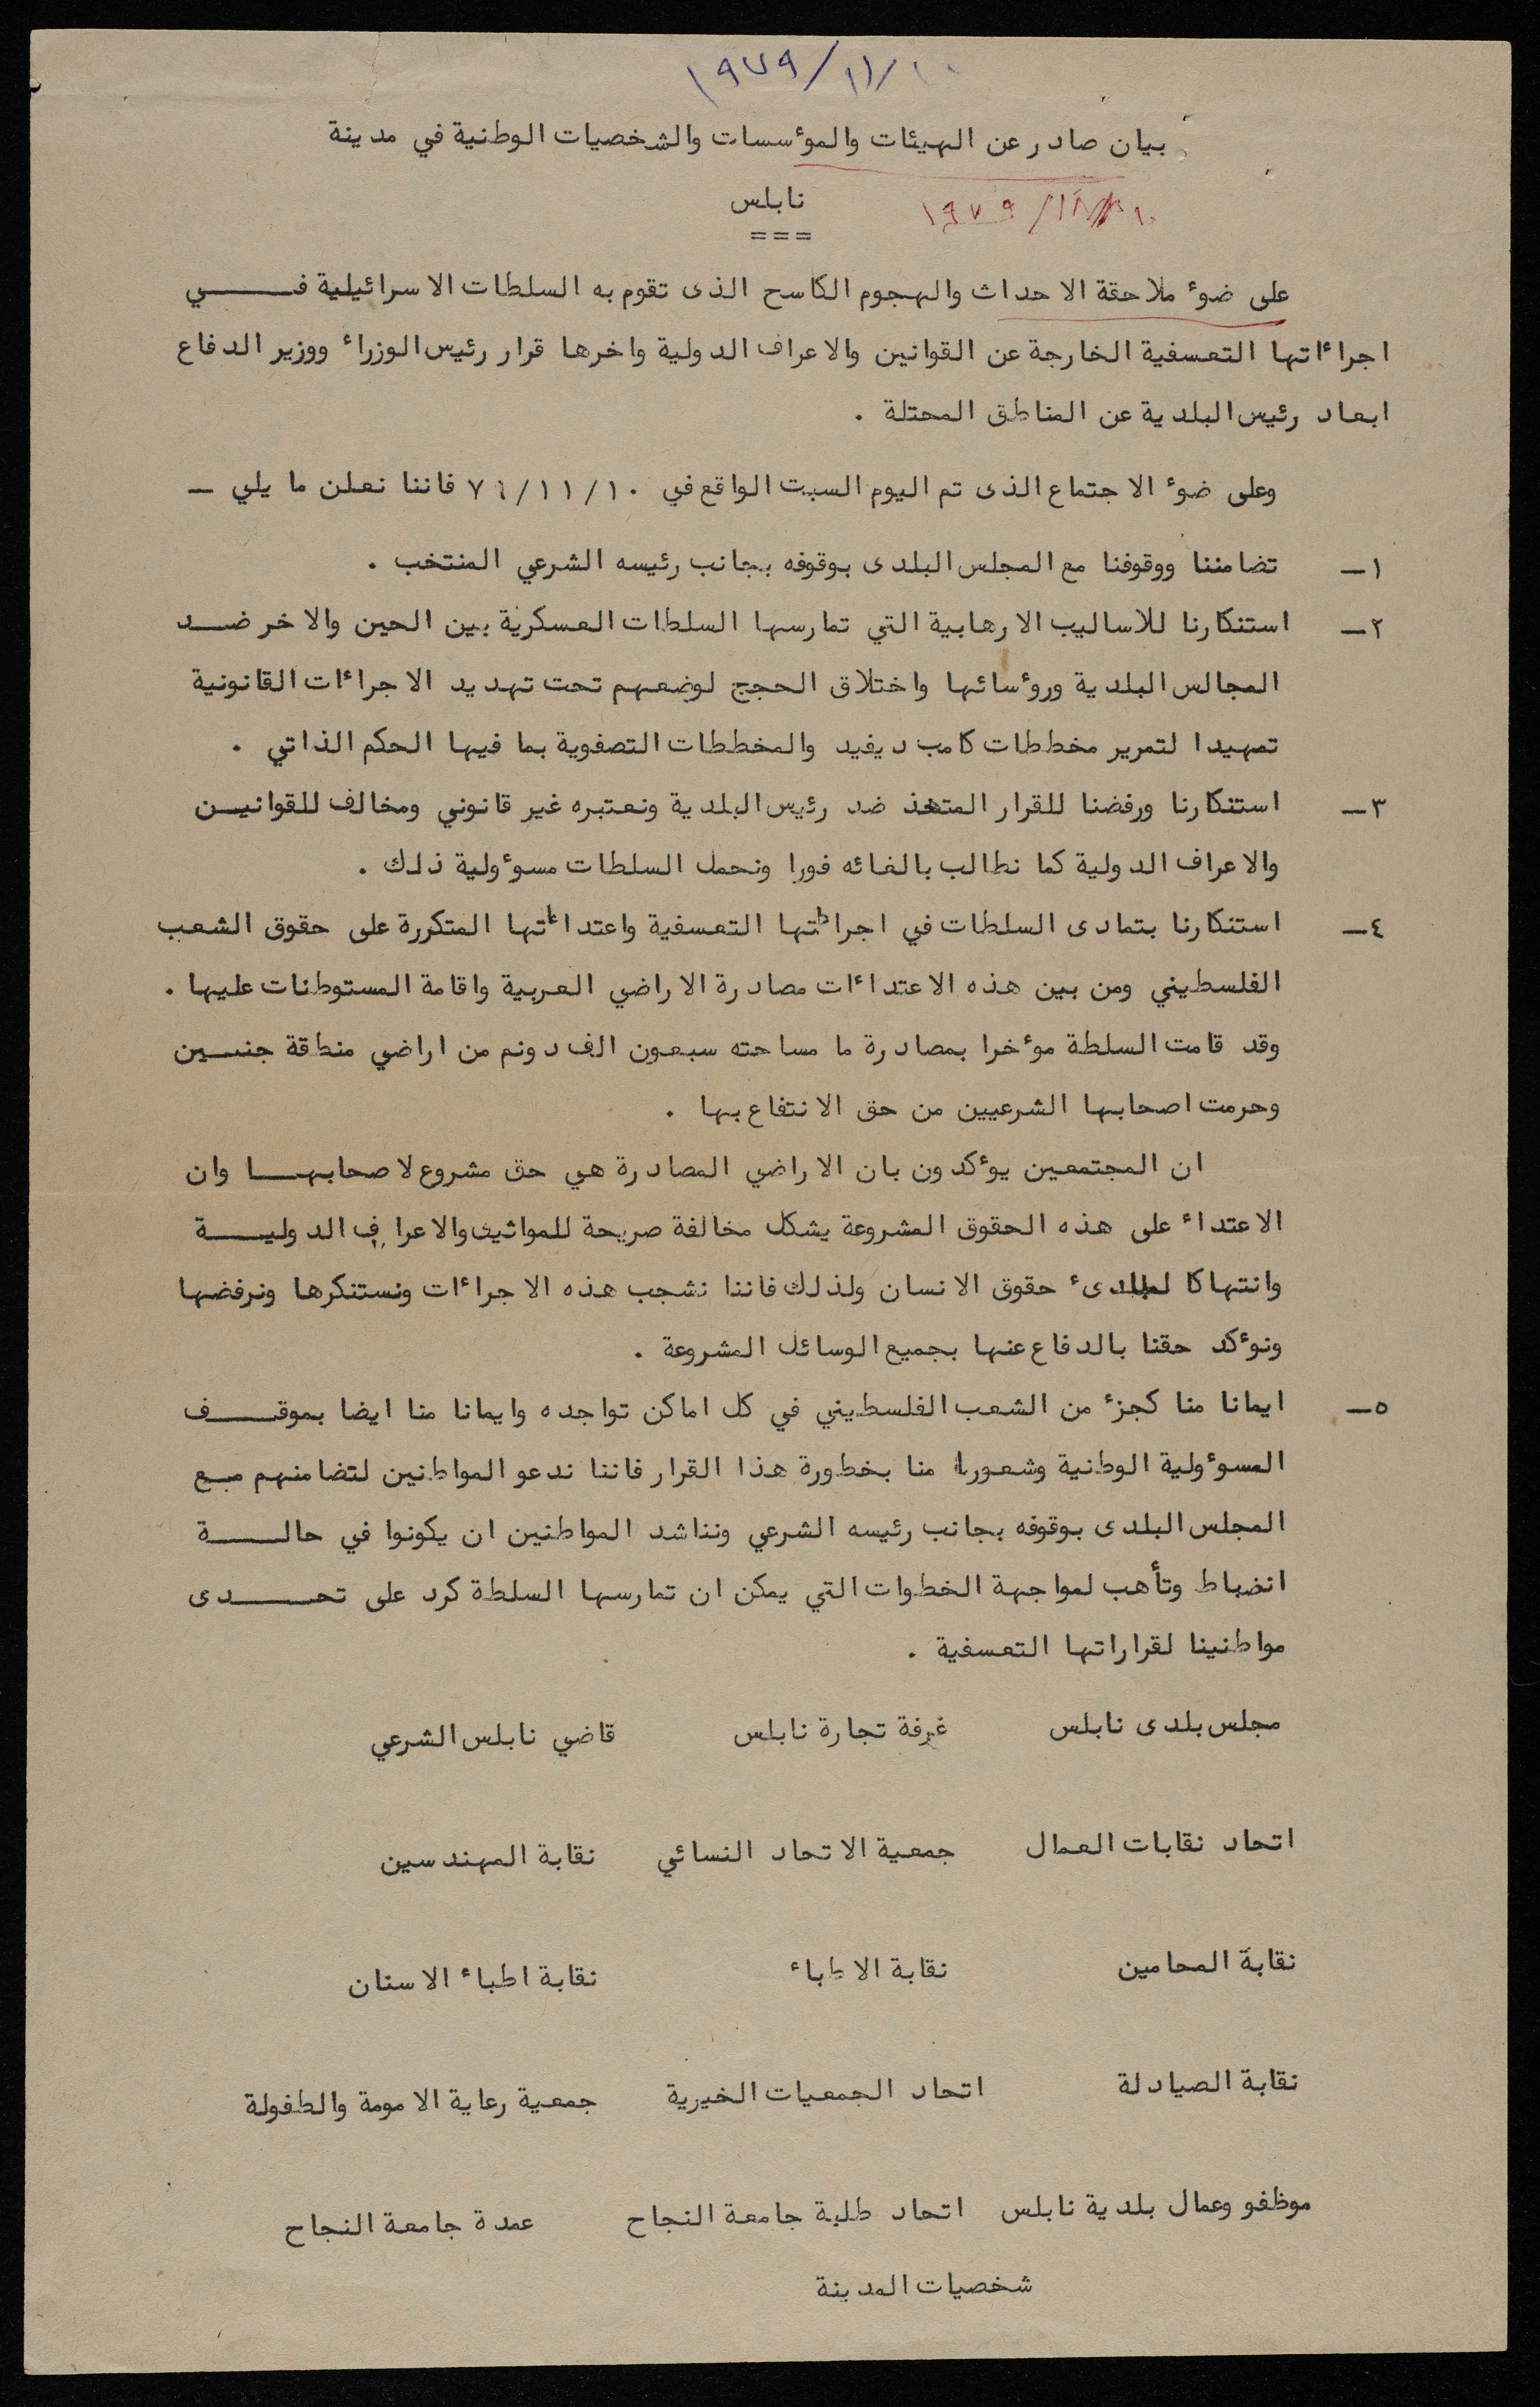 ١٩٧٩/١١/١٠
بيان صادر عن الهيئات والموٴسسات والشخصيات الوطنية في مدينة
نابلس
١٩٧٩/١١/١٠
===
على ضوء ملاحقة الاحداث والهجوم الكاسح الذى تقوم به السلطات الاسرائيلية فــــي
اجراءاتها التعسفية الخارجة عن القوانين والاعراف الدولية واخرها قرار رئيس الوزراء ووزير الدفاع
ابعاد رئيس البلدية عن المناطق المحتلة .
وعلى ضوء الاجتماع الذى تم اليوم السبت الواقع في ٧٩/١١/١٠ فاننا نعلن ما يلي ـ
١ـ تضامننا ووقوفنا مع المجلس البلدى بوقوفه بجانب رئيسه الشرعي المنتخب .
٢ـ استنكارنا للاساليب الارهابية التي تمارسها السلطات العسكرية بين الحين والاخر ضــد
المجالس البلدية وروٴسائها واختلاق الحجج لوضعهم تحت تهديد الاجراءات القانونية
تمهيدا لتمرير مخططات كامب ديفيد والمخططات التصفوية بما فيها الحكم الذاتي .
٣ـ استنكارنا ورفضنا للقرار المتخذ ضد رئيس البلدية ونعتبره غير قانوني ومخالف للقوانيــن
والاعراف الدولية كما نطالب بالغائه فورا ونحمل السلطات مسوٴولية ذلك .
٤ـ استنكارنا بتمادى السلطات في اجراءاتها التعسفية واعتداءاتها المتكررة على حقوق الشعب
الفلسطيني ومن بين هذه الاعتداءات مصادرة الاراضي العربية واقامة المستوطنات عليها .
وقد قامت السلطة موٴخرا بمصادرة ما مساحته سبعون الف دونم من اراضي منطقة جنــين
وحرمت اصحابها الشرعيين من حق الانتفاع بها .
ان المجتمعين يوٴكدون بان الاراضي المصادرة هي حق مشروع لاصحابهــا وان
الاعتداء على هذه الحقوق المشروعة يشكل مخالفة صريحة للمواثيق والاعراف الدوليــــة
وانتهاكا لمبادىء حقوق الانسان ولذلك فاننا نشجب هذه الاجراءات ونستنكرها ونرفضها
ونوٴكد حقنا بالدفاع عنها بجميع الوسائل المشروعة .
٥ـ ايمانا منا كجزء من الشعب الفلسطيني في كل اماكن تواجده وايمانا منا ايضا بموقـــف
المسوٴولية الوطنية وشعورا منا بخطورة هذا القرار فاننا ندعو المواطنين لتضامنهم مــع
المجلس البلدى بوقوفه بجانب رئيسه الشرعي ونناشد المواطنين ان يكونوا في حالــــة
انضباط وتأهب لمواجهة الخطوات التي يمكن ان تمارسها السلطة كرد على تحــــدى
مواطنينا لقراراتها التعسفية .
مجلس بلدى نابلس غرفة تجارة نابلس قاضي نابلس الشرعي
اتحاد نقابات العمال جمعية الاتحاد النسائي نقابة المهندسين
نقابة المحامين نقابة الاطباء نقابة اطباء الاسنان
نقابة الصيادلة اتحاد الجمعيات الخيرية جمعية رعاية الامومة والطفولة
موظفو وعمال بلدية نابلس اتحاد طلبة جامعة النجاح عمدة جامعة النجاح
شخصيات المدينة